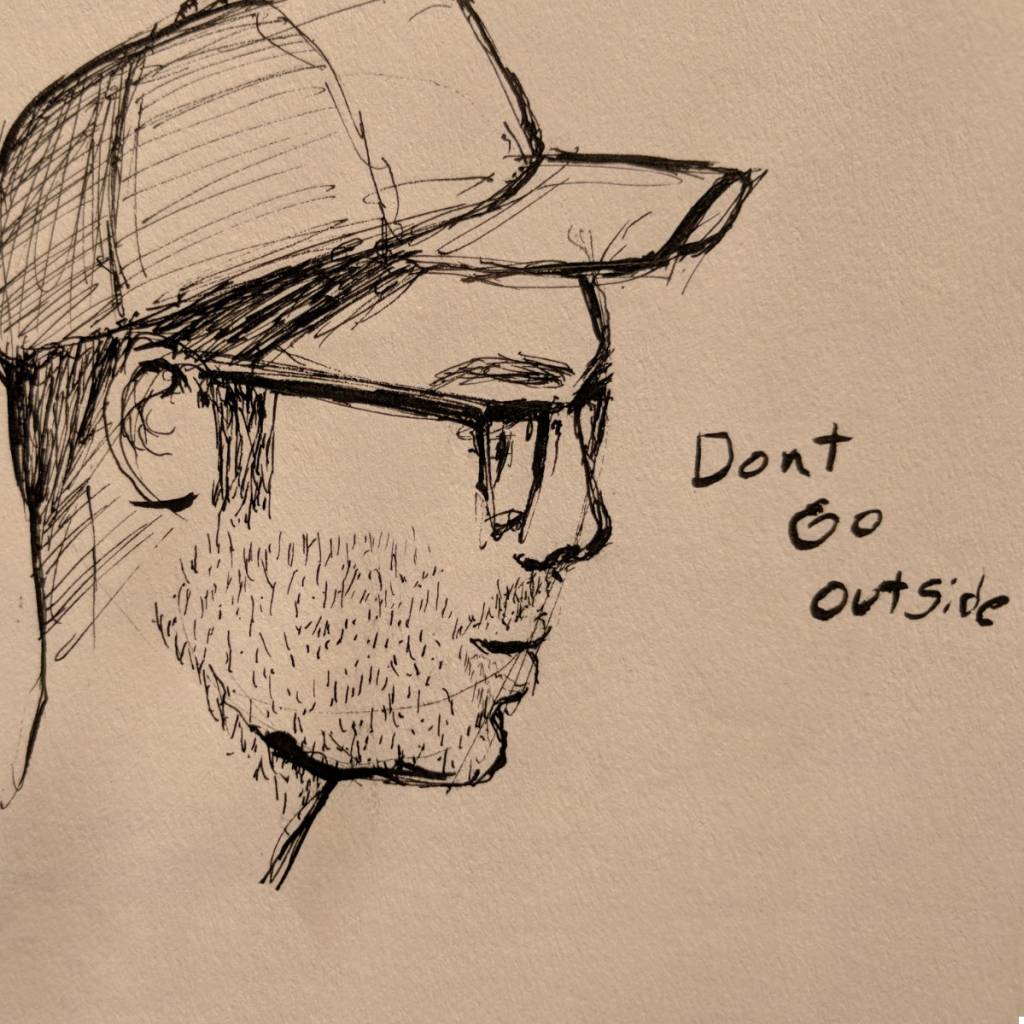 Dont
Go
outside